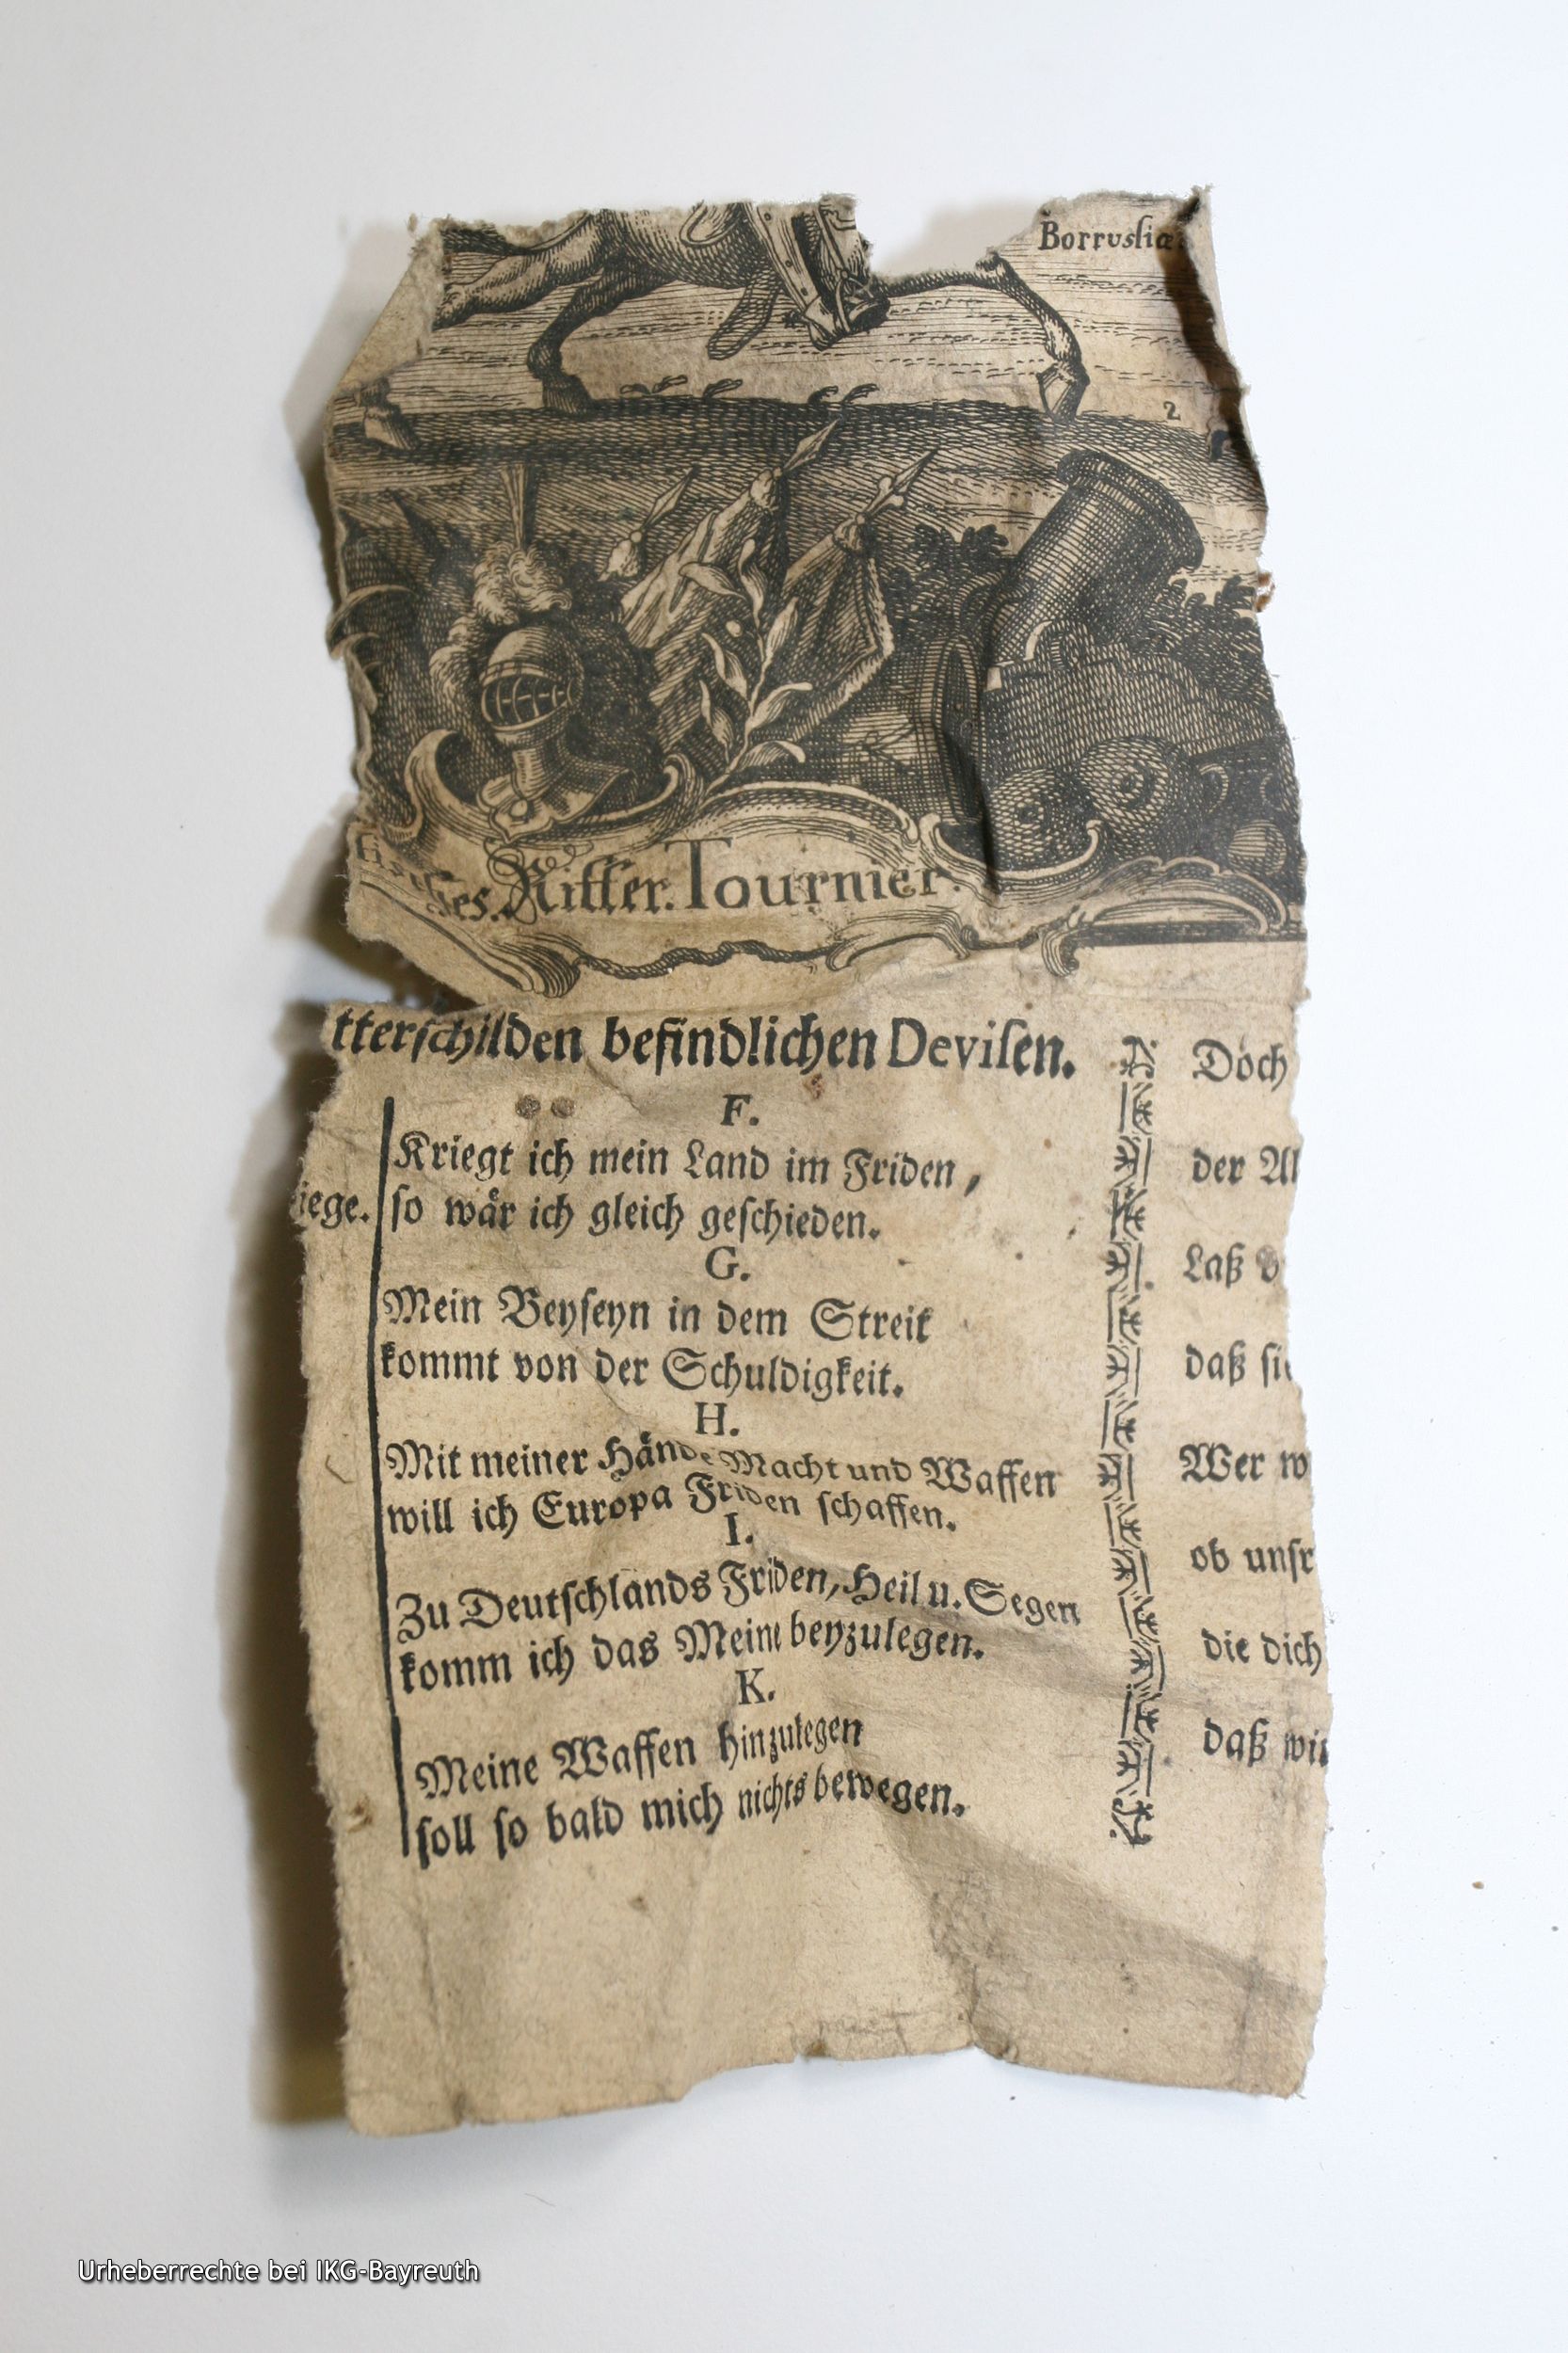 Borrusliæ
2
ses. Ritter. Tournier.
tterschilden befindlichen Devisen.
F.
Kriegt ich mein Land im Friden,
iege.
so wår ich gleich geschieden.
G.
Mein Beyseyn in dem Streit
kommt von der Schuldigkeit.
H.
Mit meiner Hände Macht und Waffen
will ich Europa Friden schaffen.
I.
Zu Deutschlands Friden, Heil u. Segen
komm ich das Meine beyzulegen.
K.
Meine Waffen hinzulegen
soll so bald mich nichts bewegen.
Doch
der Al
Laß
daß sie
Wer w
ob unsr
die dich
daß wir
Urheberrechte bei IKG-Bayreuth